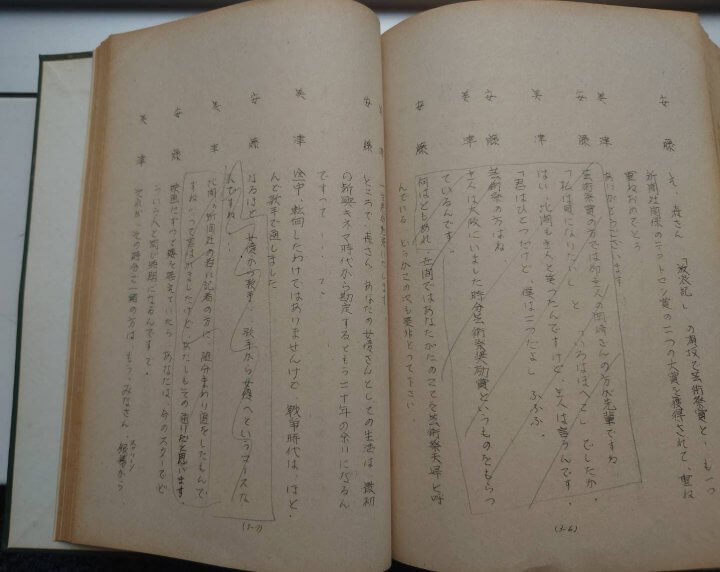 安藤 え、森さん「放浪記」の演技で芸術祭賞と、も一つ
新聞社関係のテアトロン賞の二つの大賞を獲得されて、重ね
重ねおめでとう
美津 ありがとうございます
安藤 芸術祭賞の方では御主人の岡崎さんの方が先輩ですね
「私は貝になりたい」と「いろはにほへと」でしたか、
美津 はい、此間もさんざ笑ったんですけど、主人は言うんです。
「君はひとつだけど、僕は二つだよ」ふふふ、
安藤 芸術祭の方はね
美津 主人は大阪にいました時分芸術祭奨励賞というものをもらっ
ているんです。
安藤 何はともあれ、世間ではあなたがたのことを芸術祭夫婦と呼
んでいる
(3-6)
安藤 ところで、森さん、あなたの女優さんとしての生活は、最初
の新興キネマ時代から勘定するともう二十年の余いになるん
ですって……、て、
美津 途中、転向したわけではありませんけど、戦争時代は、ほと、
んど歌手で通しました
安藤 なるほど、女優から歌手、歌手から女優へというコースな
んですね……
美津 此間の新聞社の若い記者の方に、随分まわり道をしたもんで
すねいって言われましたけど、わたしもその通りだと思います、
安藤 映画にずっと籍を置いていたら、あなたは、今のスタアでど
ういう人と同じ時期になるんですて、
美津 それが、その時分で一緒の方は、もう、みなさん、スクリーン
(3-7)